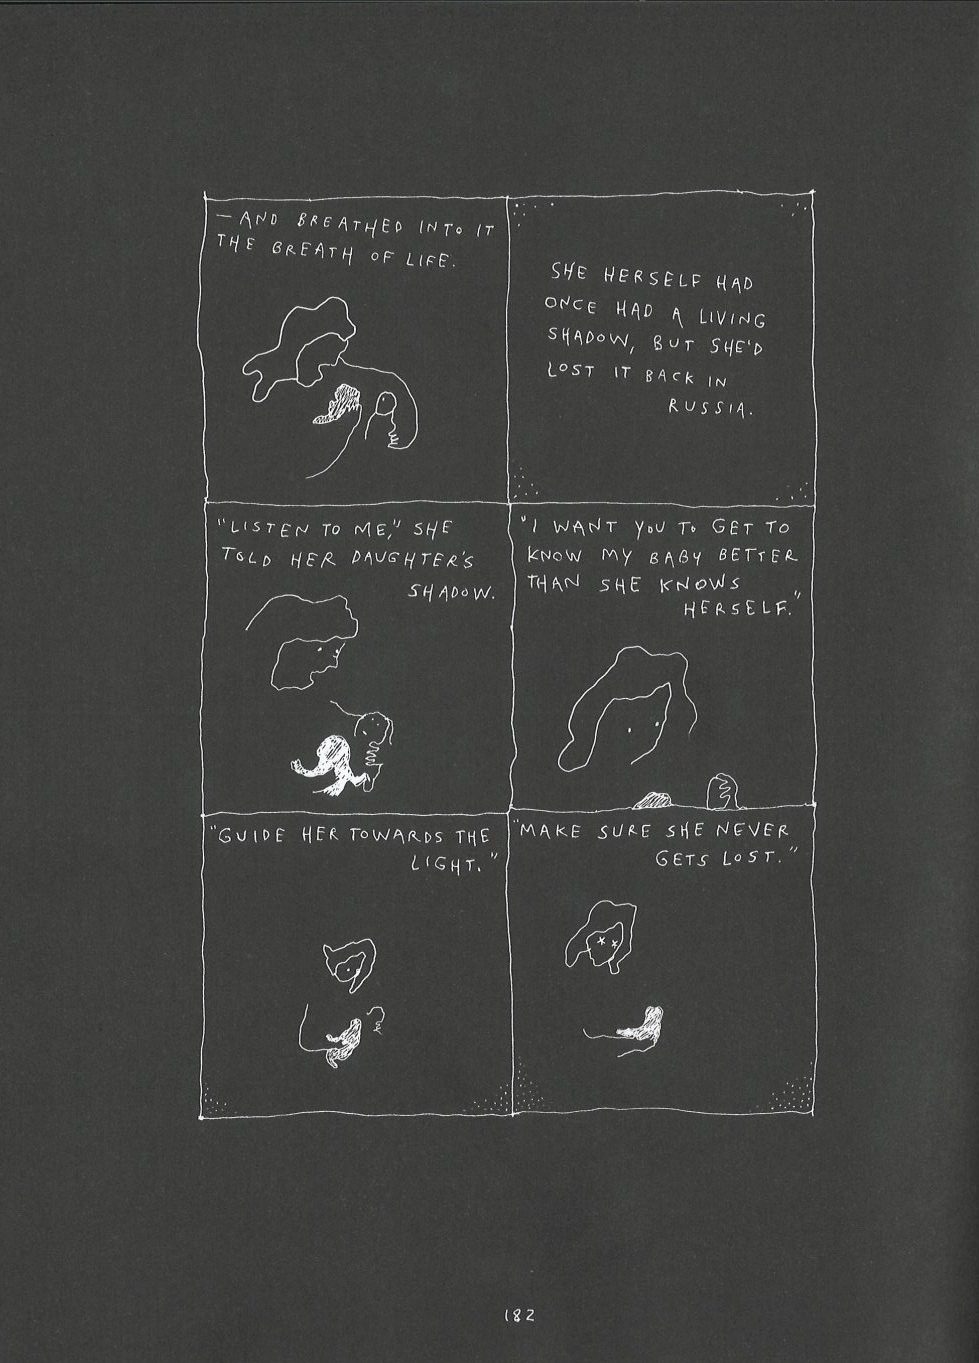 — AND BREATHED INTO IT
THE BREATH OF LIFE.
SHE HERSELF HAD
ONCE HAD A LIVING
SHADOW, BUT SHE'D
LOST IT BACK IN
RUSSIA.
"LISTEN TO ME," SHE
TOLD HER DAUGHTER'S
SHADOW.
"I WANT YOU TO GET TO
KNOW MY BABY BETTER
THAN SHE KNOWS
HERSELF."
"GUIDE HER TOWARDS THE
LIGHT."
"MAKE SURE SHE NEVER
GETS LOST."
182